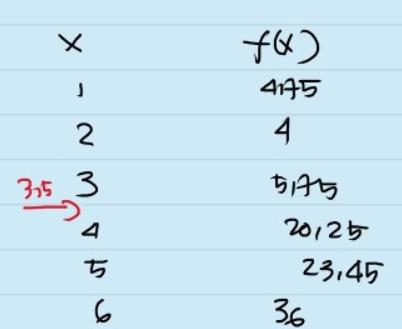 x f(x)
1 4,75
2 4
3 5,75
3,5
4 20,25
5 23,45
6 36